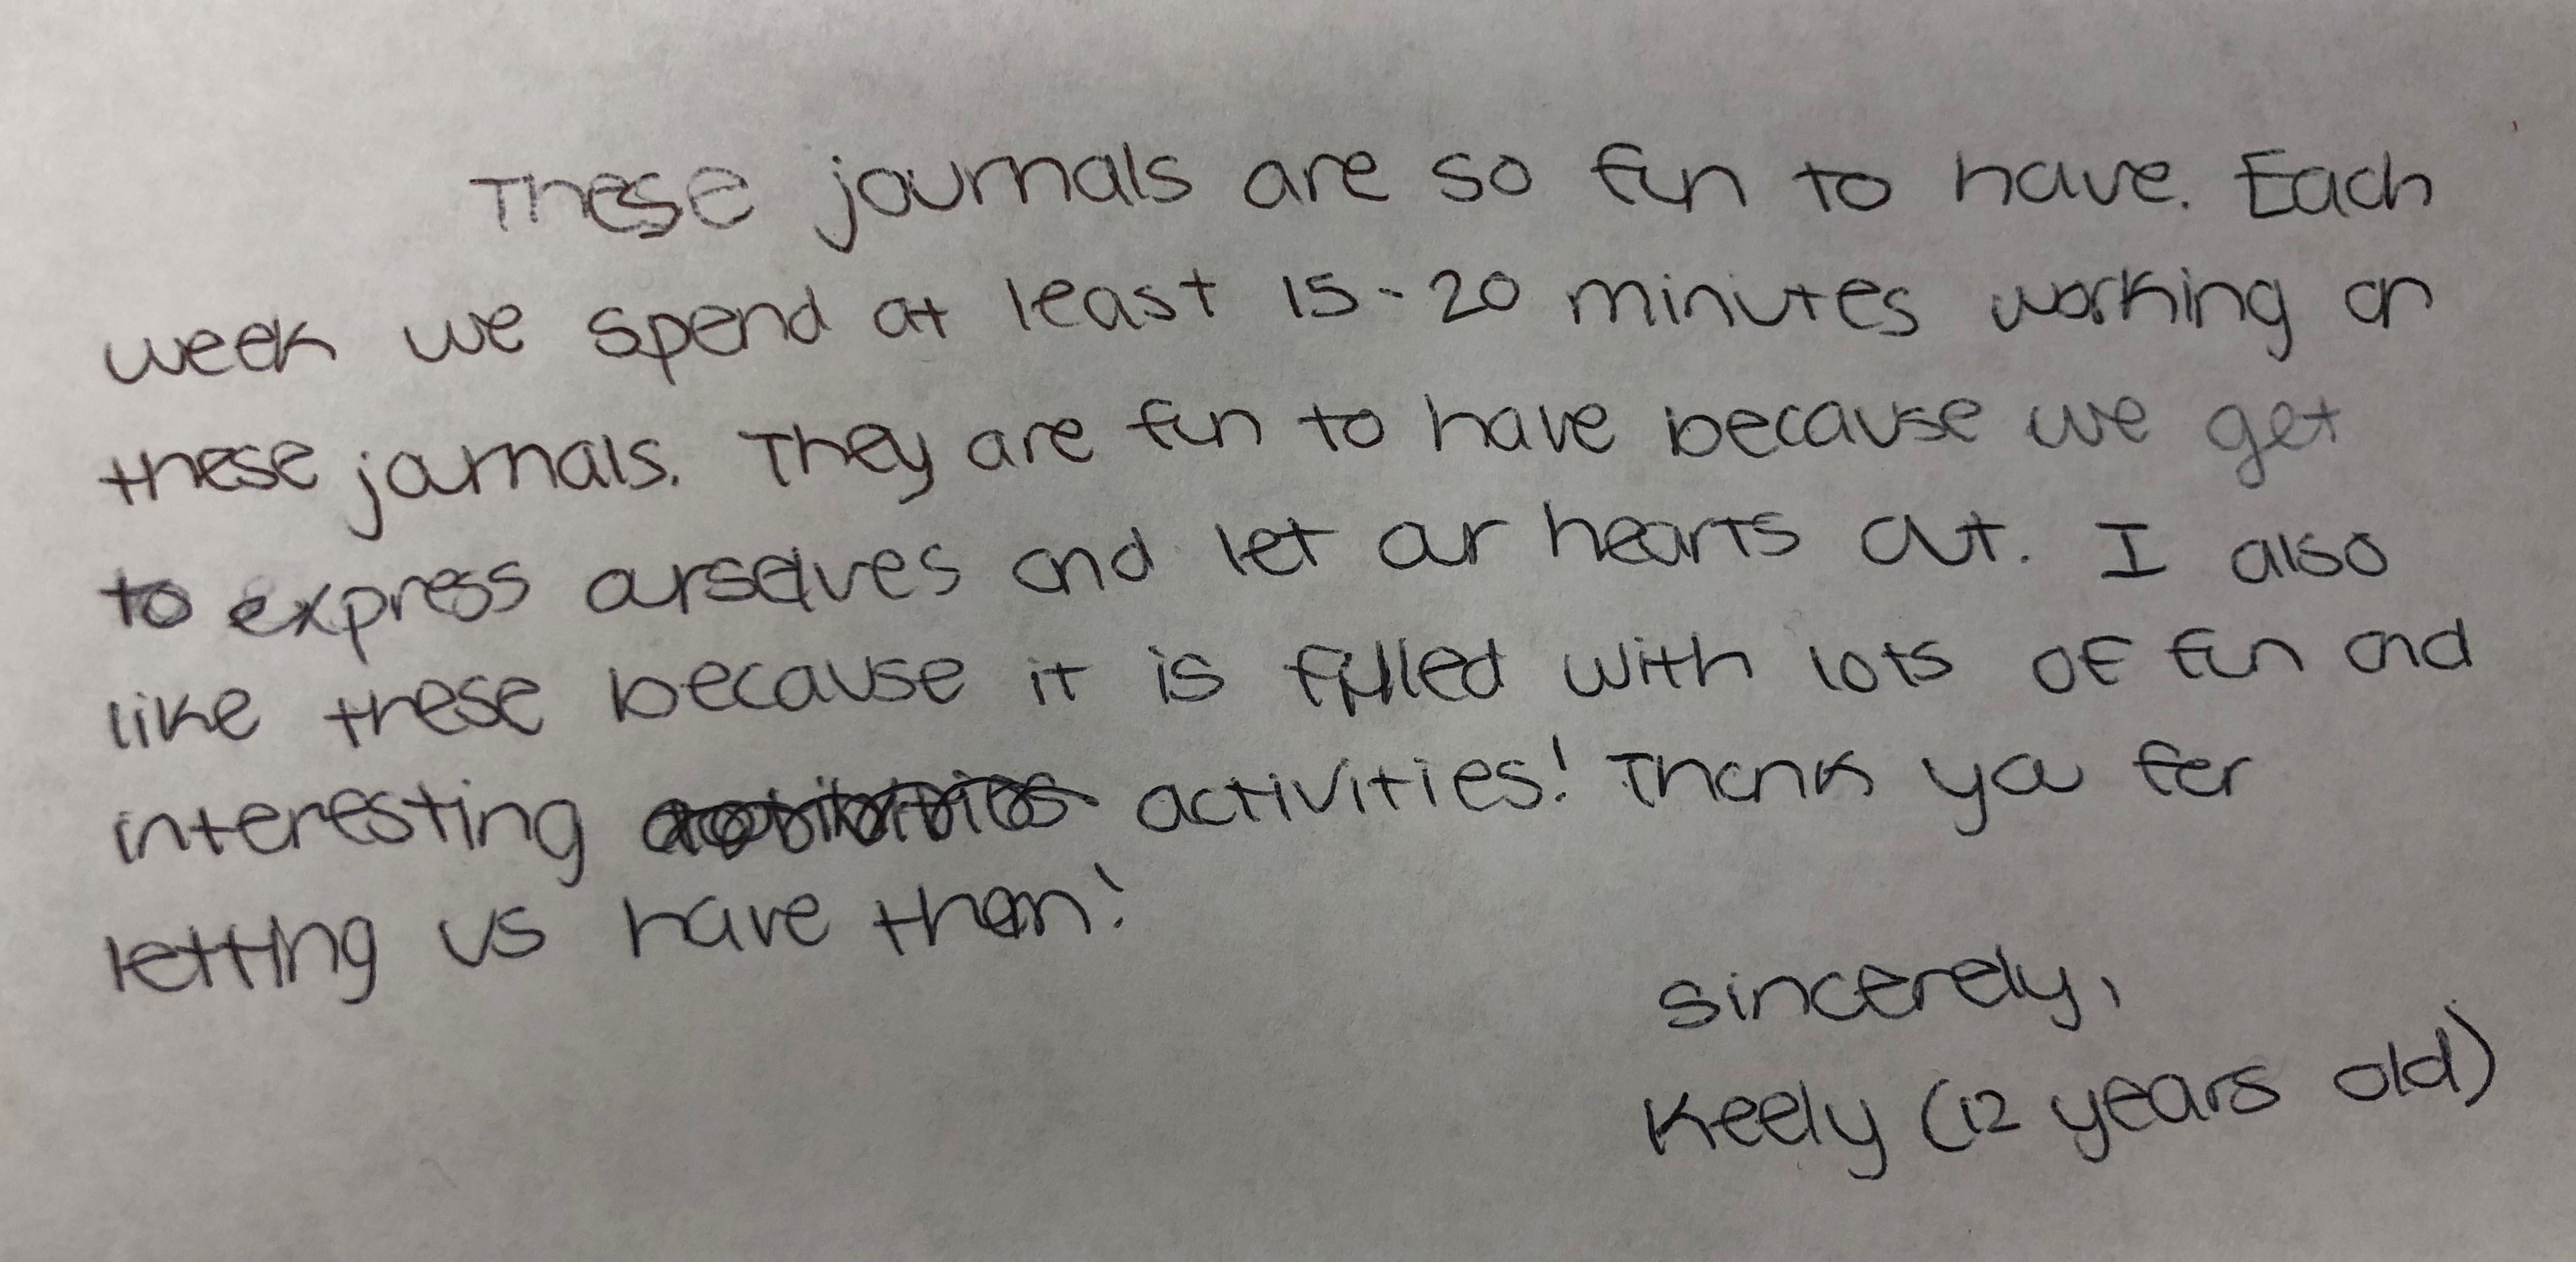 These journals are so fun to have. Each
week we spend at least 15-20 minutes working on
these journals. They are fun to have because we get
to express ourselves and let our hearts out. I also
like these because it is filled with lots of fun and
interesting activities! Thank you for
letting us have them!
Sincerely,
Keely (12 years old)